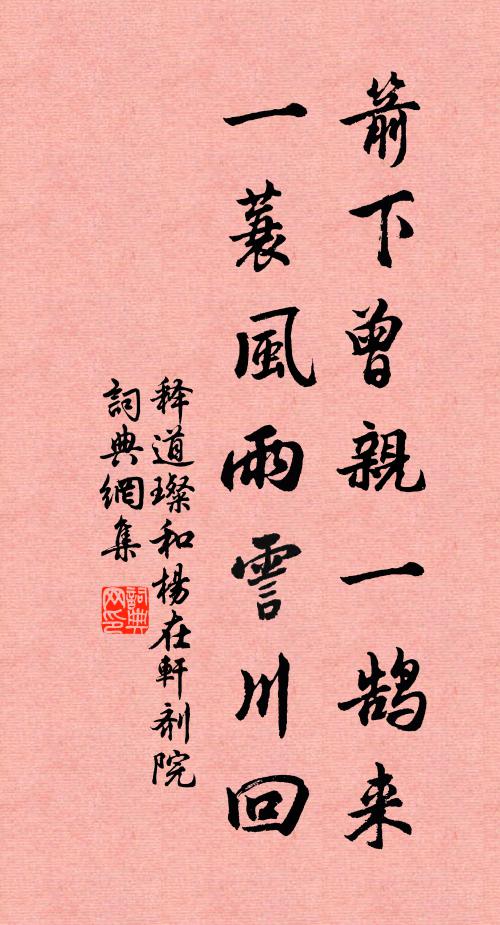 箭下曾親一鹄来
一蓑風雨霅川回
释道璨和楊在軒制院
詞典網集
詞典网印